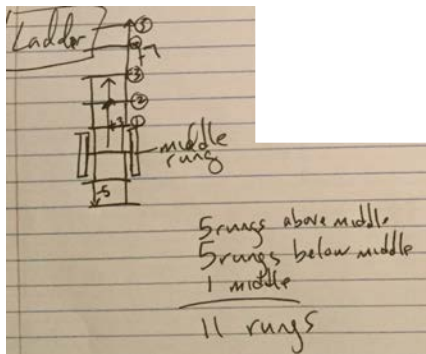 Ladder
⑤
④
+7
③
②
+3
①
middle
rung
-5
5 rungs above middle
5 rungs below middle
1 middle
11 rungs